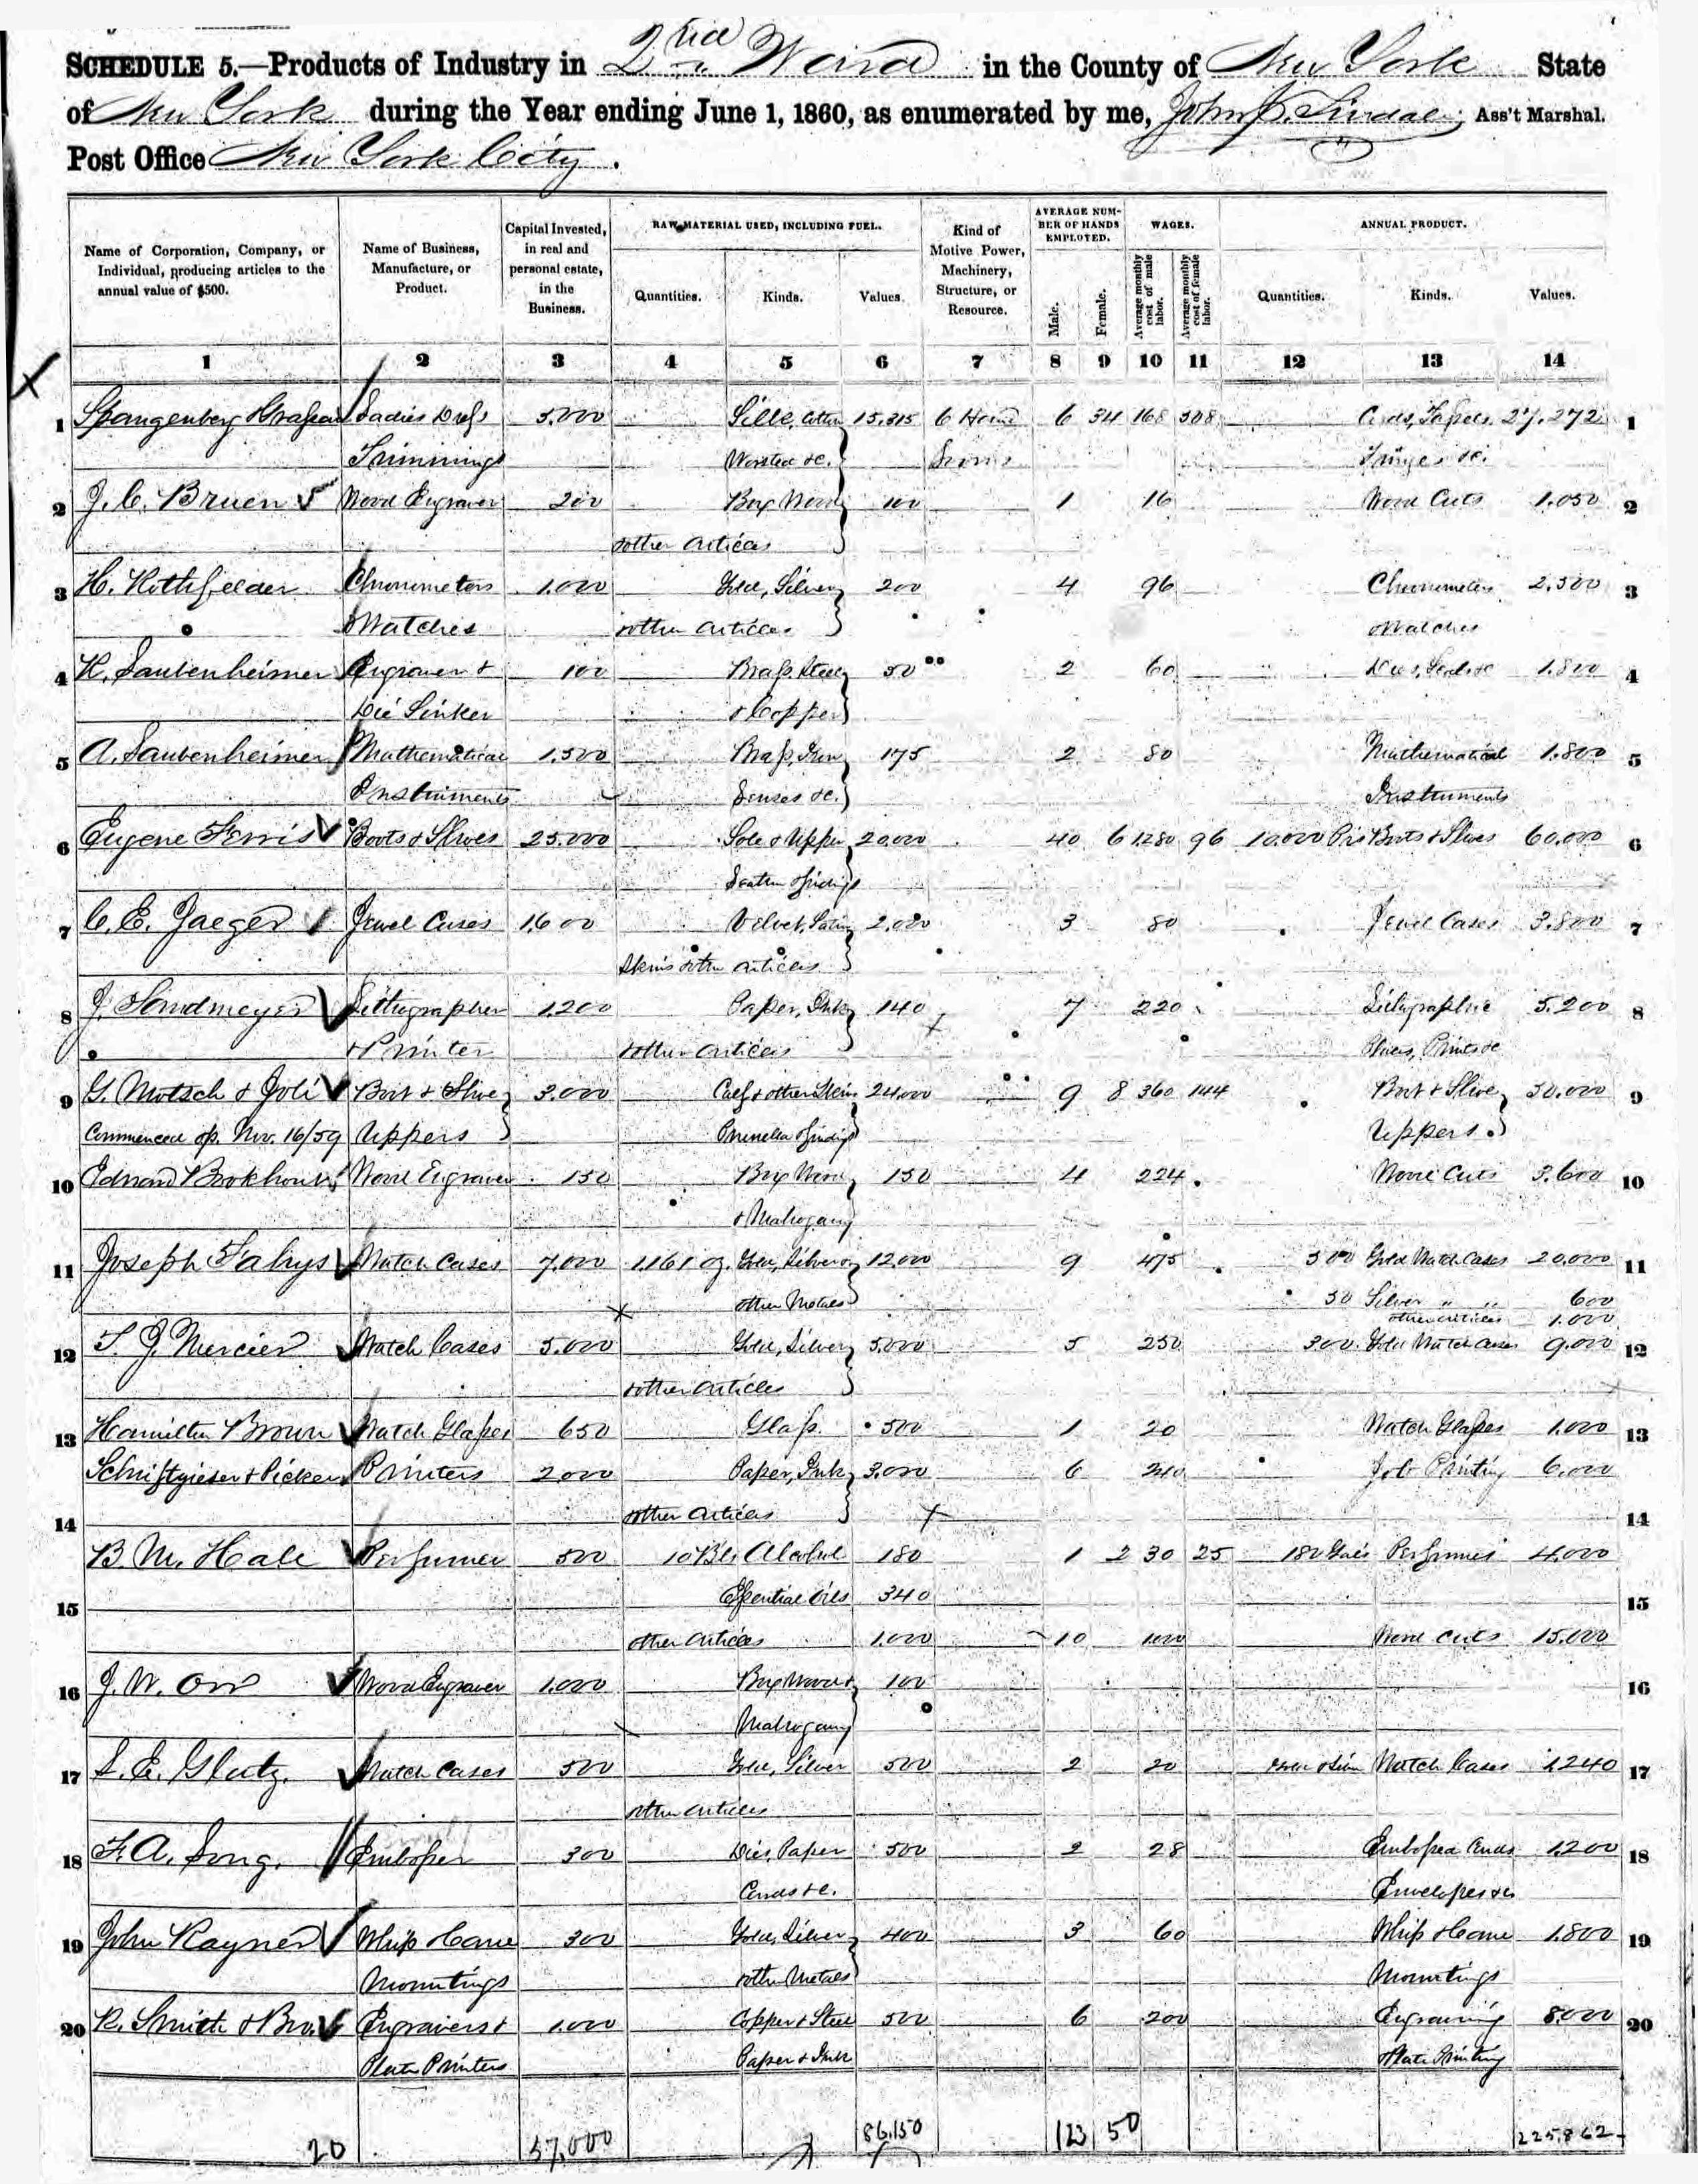 SCHEDULE 5.—Products of Industry in 2nd Ward in the County of New York State
of New York during the Year ending June 1, 1860, as enumerated by me, John J. Ass't Marshal.
Post Office New York City.
Name of Corporation, Company, or Individual, producing articles to the annual value of $500. Name of Business, Manufacture, or Product. Capital Invested, in real and personal estate, in the Business. RAW MATERIAL USED, INCLUDING FUEL. Kind of Motive Power, Machinery, Structure, or Resource. AVERAGE NUMBER OF HANDS EMPLOYED. WAGES. ANNUAL PRODUCT.
Quantities. Kinds. Values. Male. Female. Average monthly cost of male labor. Average monthly cost of female labor. Quantities. Kinds. Values.
1 2 3 4 5 6 7 8 9 10 11 12 13 14
1 Spangenberg Ladies Dress 5.000 Cotton 15.315 6 Hand 6 34 168 508 Cords, Tassels 27.272 1
Trimmings Worsted &c. Looms Fringes &c.
2 J. C. Bruen Wood Engraver 200 Box Wood 100 1 16 Wood Cuts 1.050 2
& other Articles
3 H. Chronometers 1.000 Gold, Silver 200 4 96 Chronometers 2.500 3
& Watches & other Articles & Watches
4 H. Laubenheimer Engraver & 100 Brass, Steel 50 2 60 Dies, Seals &c 1.800 4
Die Sinker & Copper
5 A. Laubenheimer Mathematical 1.500 Brass, Iron 175 2 80 Mathematical 1.800 5
Instruments Lenses &c. Instruments
6 Eugene Ferris Boots & Shoes 25.000 Sole & Upper 20.000 40 6 1.280 96 10.000 Prs Boots & Shoes 60.000 6
Leather & findings
7 C. E. Jaeger Jewel Cases 1.600 Velvet, Satin 2.000 3 80 Jewel Cases 3.800 7
Skins & other Articles
8 J. Sandmeyer Lithographer 1.200 Paper, Ink 140 7 220 Lithographic 5.200 8
& Printer & other Articles Prints &c
9 G. Motsch & Joli Boot & Shoe 3.000 Calf & other Skins 24.000 9 8 360 144 Boot & Shoe 50.000 9
Commenced op. Nov. 16/59 Uppers Prunella & findings Uppers.
10 Edward Bookhout Wood Engraver 150 Box Wood 150 4 224 Wood Cuts 3.600 10
& Mahogany
11 Joseph Fahys Watch Cases 7.000 1,161 oz. Gold, Silver & 12.000 9 475 500 Gold Watch Cases 20.000 11
other Metals 50 Silver " " 600
other articles 1.000
12 T. J. Mercier Watch Cases 5.000 Gold, Silver 5.000 5 250 300 Gold Watch Cases 9.000 12
& other Articles
13 Hamilton Brown Watch Glasses 650 Glass. 500 1 20 Watch Glasses 1.000 13
Schriftgieser & Picker Printers 2.000 Paper, Ink 3.000 6 240 Job Printing 6.000
14 & other Articles 14
B. M. Hale Perfumer 500 10 Bls Alcohol 180 1 2 30 25 180 Gals Perfumes 4.000
15 Essential Oils 340 15
other Articles 1.000 10 1000 Wood Cuts 15.000
16 J. W. Orr Wood Engraver 1.000 Box Wood & 100 16
Mahogany
17 S. E. Glutz. Watch Cases 500 Gold, Silver 500 2 20 Gold & Silver Watch Cases 1.240 17
other Articles
18 F. A. Long. Embosser 300 Dies, Paper 500 2 28 Embossed Cards 1.200 18
Cards &c. Envelopes &c
19 John Rayner Whip & Cane 300 Gold, Silver 400 3 60 Whip & Cane 1.800 19
Mountings & other Metals Mountings
20 R. Smith & Bro. Engravers & 1.000 Copper & Steel 500 6 200 Engraving 8.000 20
Plate Printers Paper & Ink & Plate Printing
20 57,000 86,150 123 50 225,862